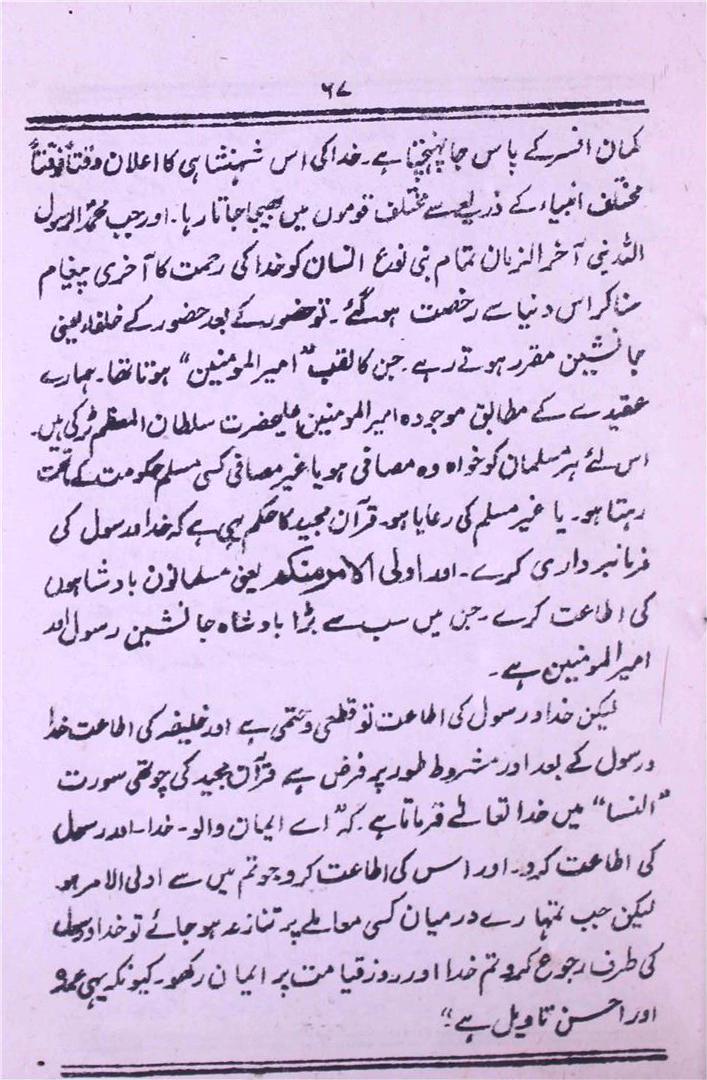 ۶۷
کمان افسر کے پاس جا پہنچتا ہے۔ خدا کی اس شہنشاہی کا اعلان وقتاً فوقتاً
مختلف انبیاء کے ذریعے سے مختلف قوموں میں بھیجا جاتا رہا۔ اور جب محمدؐ الرسول
اللہ نبی آخر الزمان تمام بنی نوع انسان کو خدا کی رحمت کا آخری پیغام
سنا کر اس دنیا سے رخصت ہو گئے۔ تو حضور کے بعد حضور کے خلفاء یعنی
جانشین مقرر ہوتے رہے۔ جن کا لقب "امیر المومنین" ہوتا تھا۔ ہمارے
عقیدے کے مطابق موجودہ امیر المومنین اعلیحضرت سلطان المعظم ٹرکی ہیں۔
اس لئے ہر مسلمان کو خواہ وہ مصافی ہو یا غیر مصافی کسی مسلم حکومت کے تحت
رہتا ہو۔ یا غیر مسلم کی رعایا ہو۔ قرآن مجید کا حکم یہی ہے کہ خدا و رسول کی
فرمانبرداری کرے۔ اور اولی الامر منکم یعنی مسلمانوں بادشاہوں
کی اطاعت کرے۔ جن میں سب سے بڑا بادشاہ جانشین رسول اللہ
امیر المومنین ہے۔
لیکن خدا و رسول کی اطاعت تو قطعی و حتمی ہے اور خلیفہ کی اطاعت خدا
و رسول کے بعد اور مشروط طور پر فرض ہے قرآن مجید کی چوتھی سورت
"النسا" میں خدا تعالےٰ فرماتا ہے کہ "اے ایمان والو۔ خدا۔ اور رسول
کی اطاعت کرو۔ اور اس کی اطاعت کرو جو تم میں سے اولی الامر ہو
لیکن جب تمہارے درمیان کسی معاملے پر تنازعہ ہو جائے تو خدا و رسول
کی طرف رجوع کرو تم خدا اور روز قیامت پر ایمان رکھو۔ کیونکہ یہی عمدہ
اور احسن تاویل ہے"